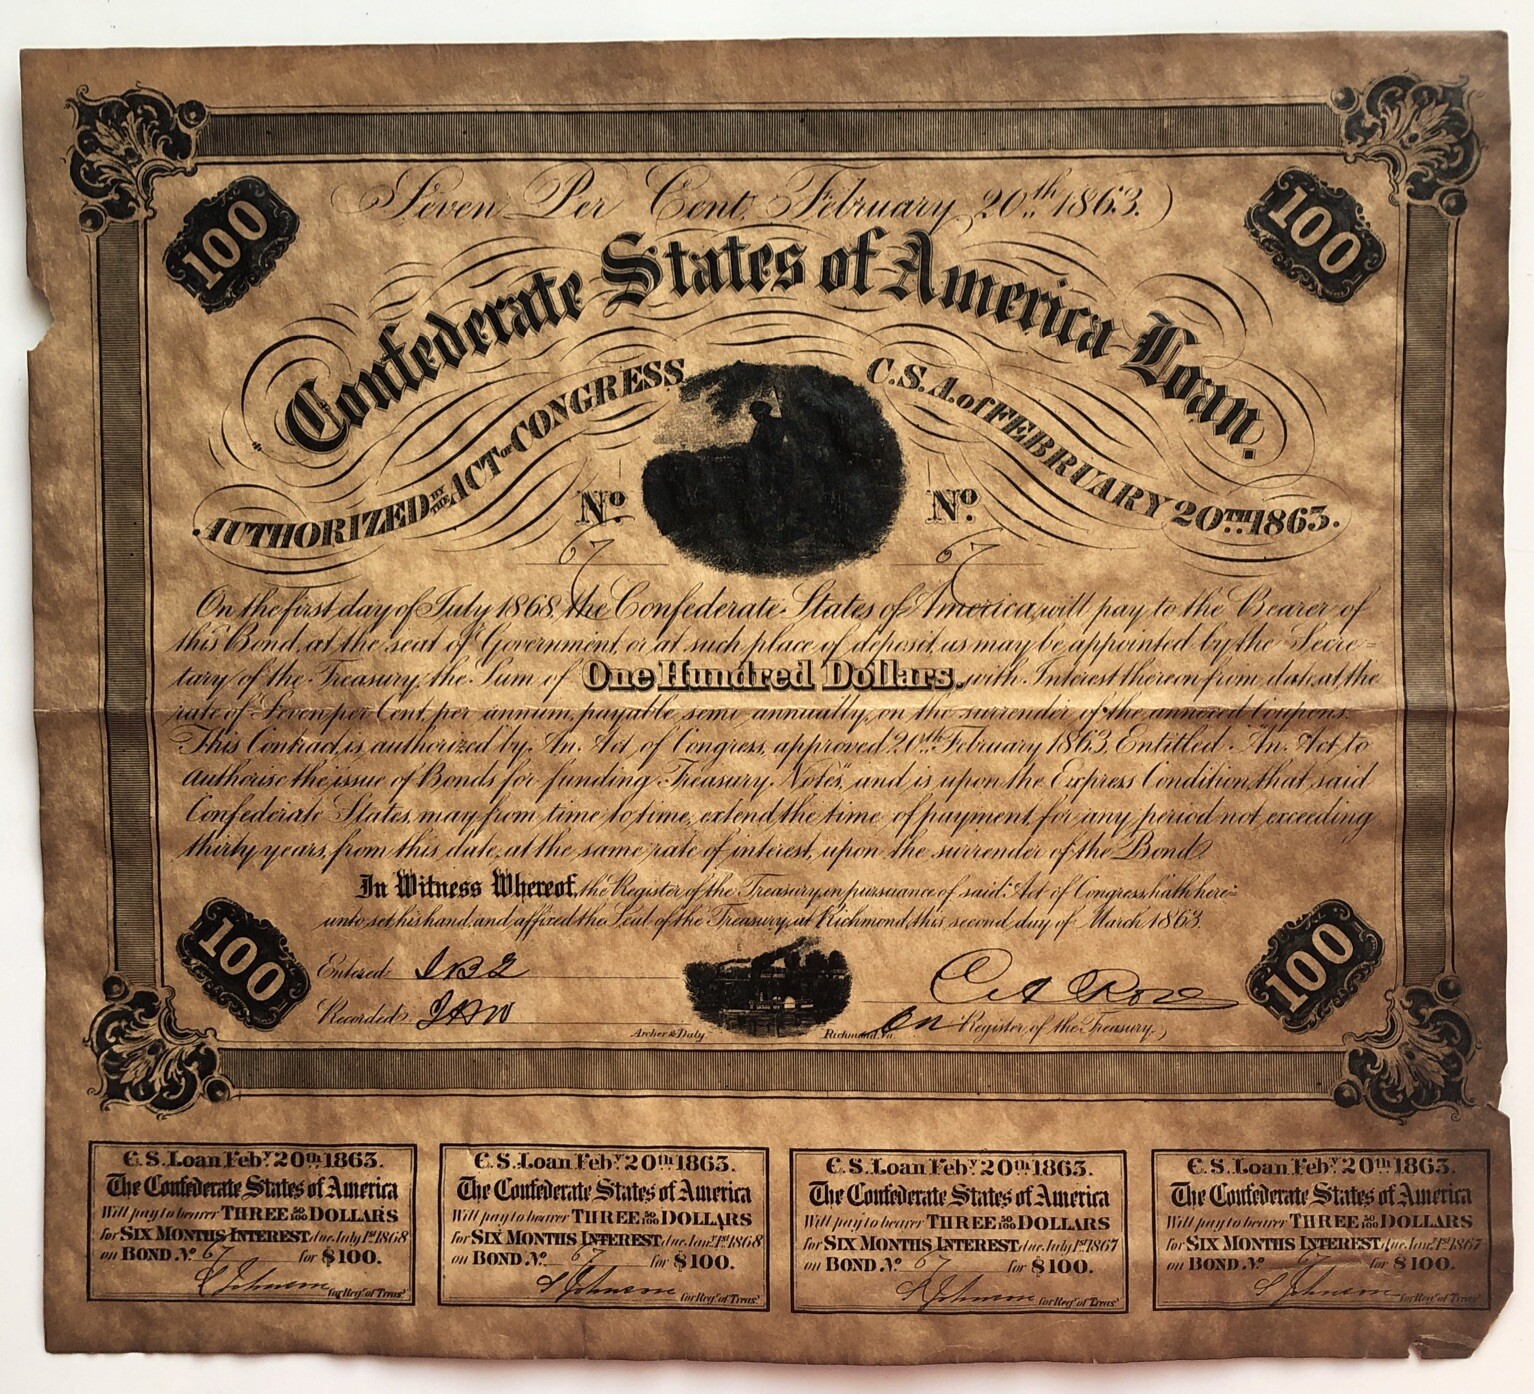 100
100
Seven Per Cent, February, 20th 1863.)
Confederate States of America Loan.
AUTHORIZED BY THE ACT OF CONGRESS C.S.A. of FEBRUARY 20TH 1863.
No. No.
67 67
On the first day of July 1868, the Confederate States of America, will pay to the Bearer of
this Bond, at the seat of Government, or at such place of deposit, as may be appointed by the Secre=
tary of the Treasury, the Sum of One Hundred Dollars, with Interest thereon from date, at the
rate of Seven per Cent, per annum, payable semi annually, on the surrender of the annexed Coupons.
This Contract, is authorized by "An Act of Congress, approved 20th February 1863, Entitled "An Act, to
authorise the issue of Bonds for funding Treasury Notes", and is upon the Express Condition, that said
Confederate States, may from time to time, extend the time of payment, for any period not exceeding
thirty years, from this date, at the same rate of interest, upon the surrender of the Bond.
In Witness Whereof, the Register of the Treasury, in pursuance of said Act of Congress, hath here=
unto set his hand, and affixed the Seal of the Treasury, at Richmond, this second day of March 1863.
100
100
Entered
Recorded JHW
C A Rose
Archer & Daly Richmond, Va. Register, of the Treasury.)
C. S. Loan Feby 20th 1863.
The Confederate States of America
Will pay to bearer THREE 50/100 DOLLARS
for SIX MONTHS INTEREST due July 1st 1868
on BOND. No 67 for $100.
S Johnson for Regr of Treasy
C. S. Loan Feby 20th 1863.
The Confederate States of America
Will pay to bearer THREE 50/100 DOLLARS
for SIX MONTHS INTEREST due Jany 1st 1868
on BOND. No 67 for $100.
S Johnson for Regr of Treasy
C. S. Loan Feby 20th 1863.
The Confederate States of America
Will pay to bearer THREE 50/100 DOLLARS
for SIX MONTHS INTEREST due July 1st 1867
on BOND. No 67 for $100.
S Johnson for Regr of Treasy
C. S. Loan Feby 20th 1863.
The Confederate States of America
Will pay to bearer THREE 50/100 DOLLARS
for SIX MONTHS INTEREST due Jany 1st 1867
on BOND. No 67 for $100.
S Johnson for Regr of Treasy